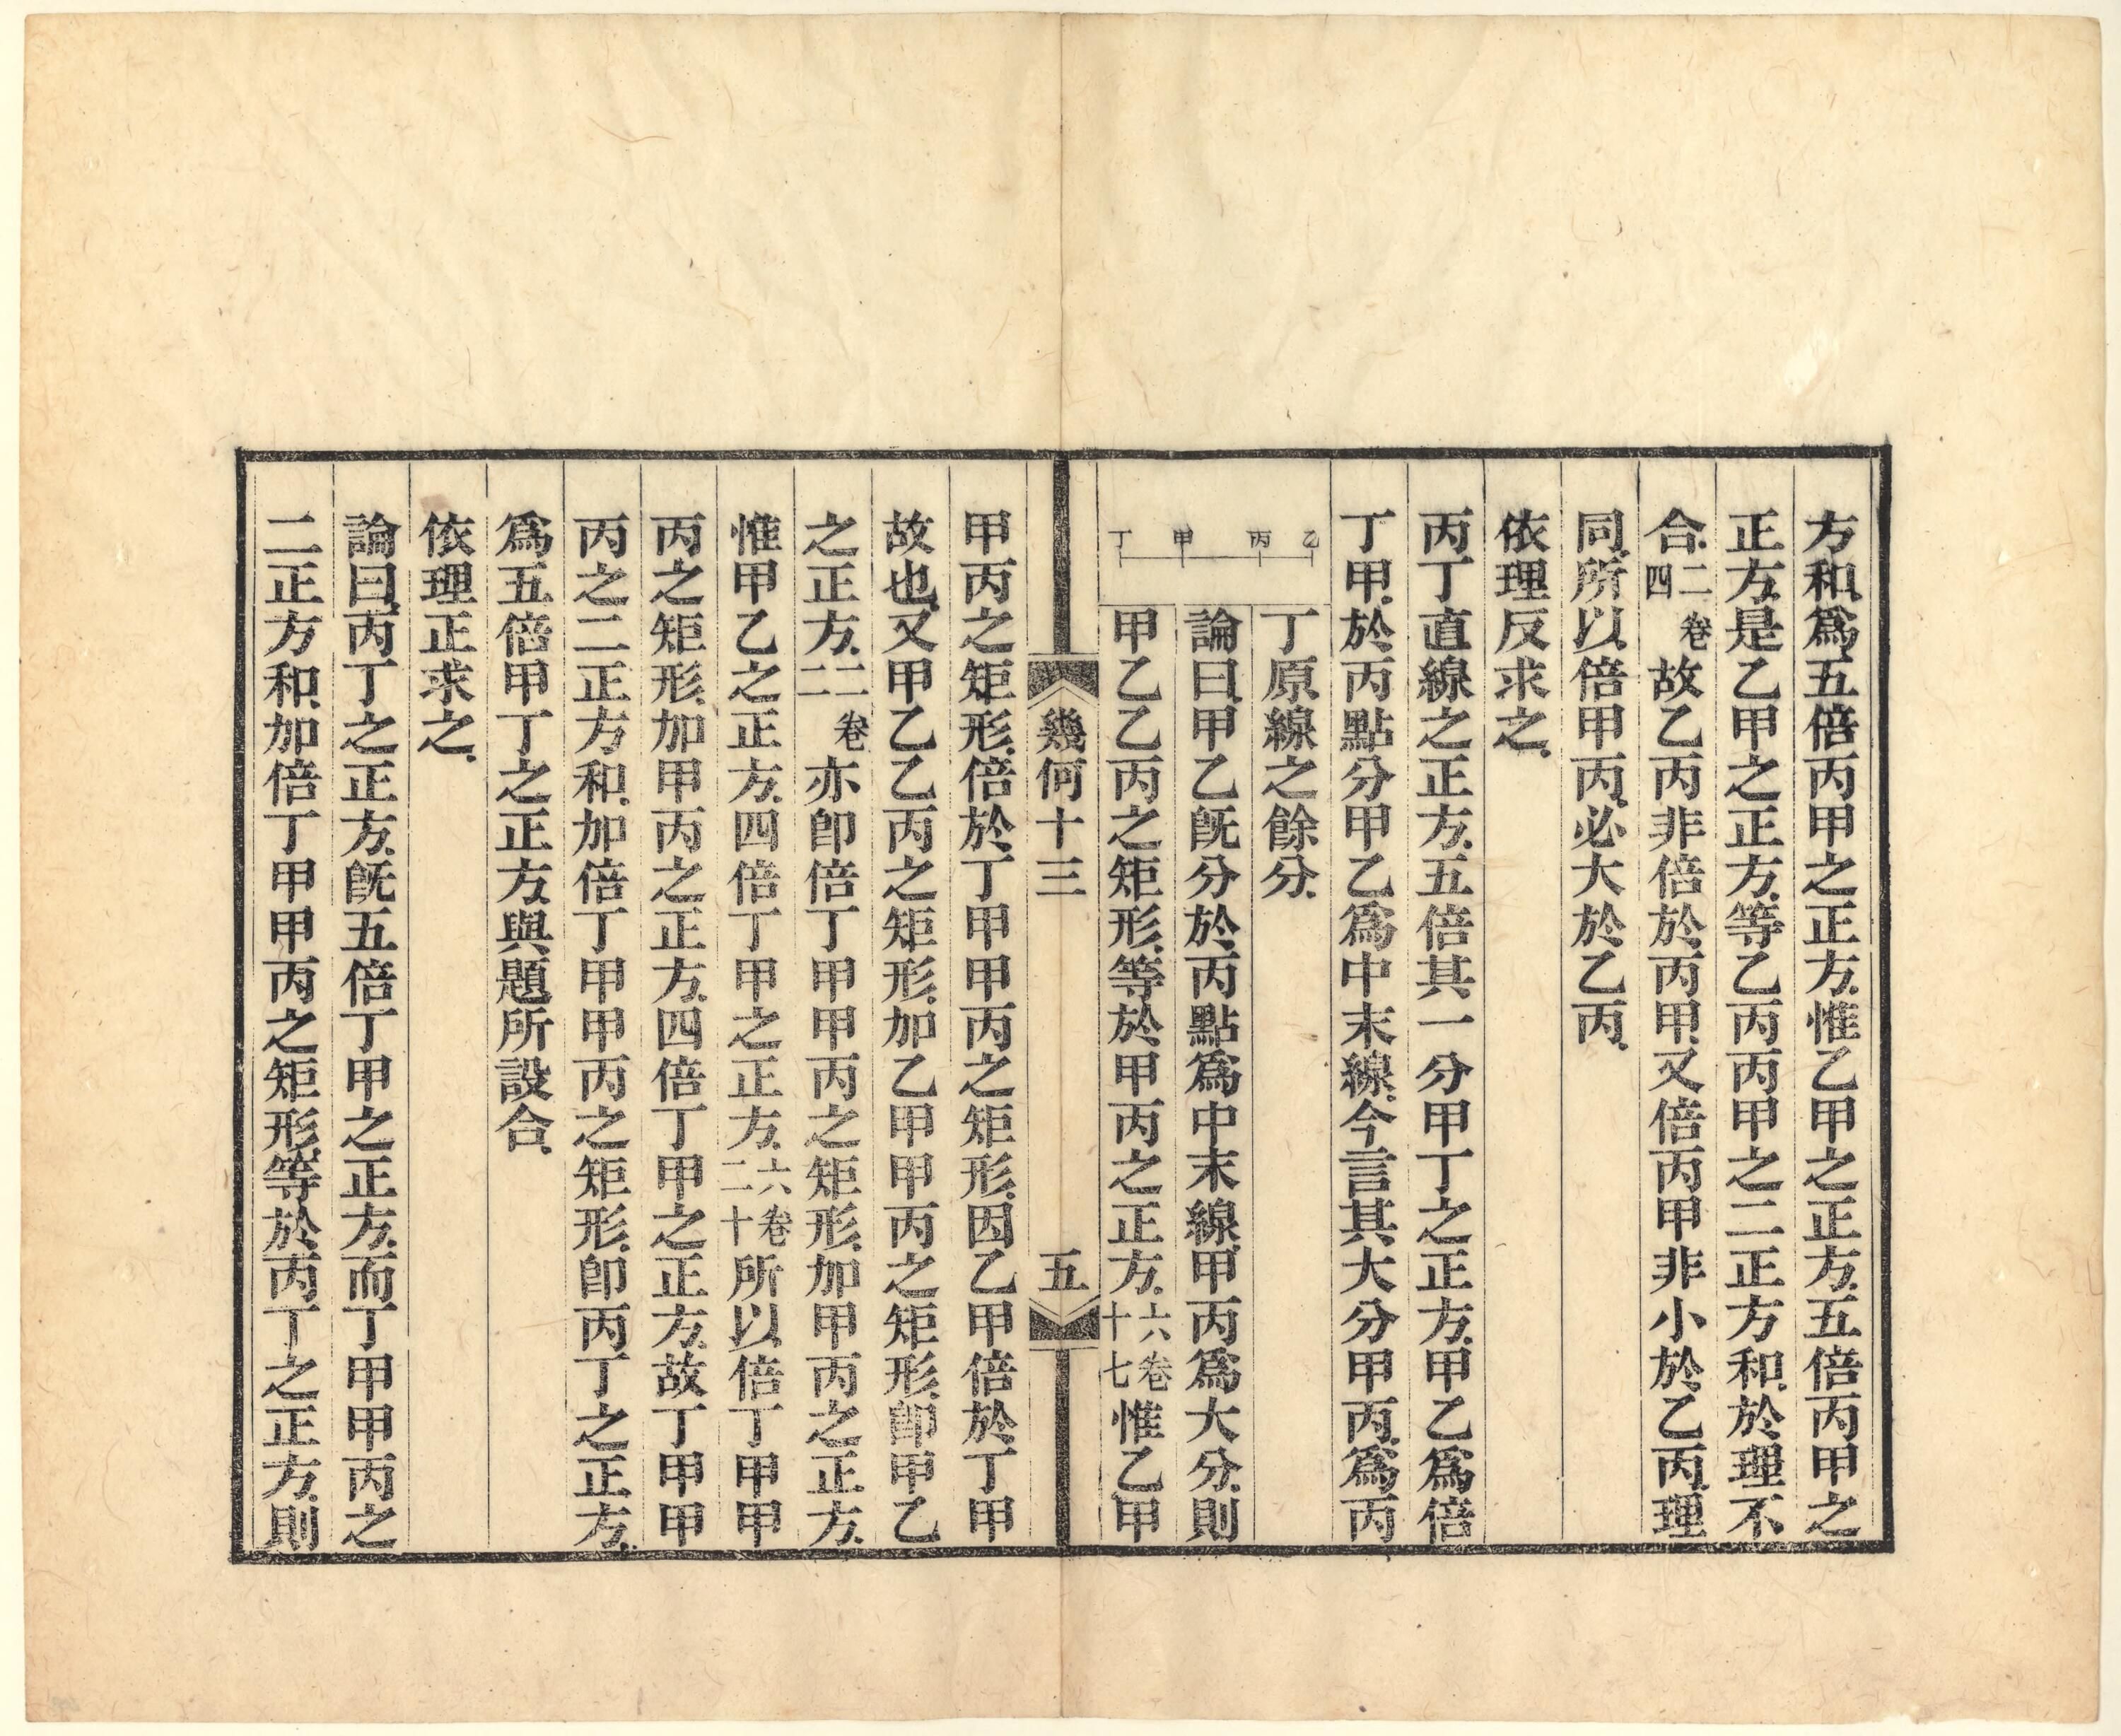 方和、爲五倍丙甲之正方、惟乙甲之正方、五倍丙甲之
正方、是乙甲之正方、等乙丙丙甲之二正方和、於理不
合、二卷四故乙丙非倍於丙甲、又倍丙甲非小於乙丙、理
同、所以倍甲丙、必大於乙丙、
依理反求之、
丙丁直線之正方、五倍其一分甲丁之正方、甲乙爲倍
丁甲、於丙點分甲乙爲中末線、今言其大分甲丙、爲丙
丁原線之餘分、
丁 甲 丙 乙
論曰、甲乙旣分於丙點爲中末線、甲丙爲大分、則
甲乙乙丙之矩形、等於甲丙之正方、六卷十七惟乙甲
幾何十三 五
甲丙之矩形、倍於丁甲甲丙之矩形、因乙甲倍於丁甲
故也、又甲乙乙丙之矩形、加乙甲甲丙之矩形、卽甲乙
之正方、二卷二亦卽倍丁甲甲丙之矩形、加甲丙之正方、
惟甲乙之正方、四倍丁甲之正方、六卷二十所以倍丁甲甲
丙之矩形、加甲丙之正方、四倍丁甲之正方、故丁甲甲
丙之二正方和、加倍丁甲甲丙之矩形、卽丙丁之正方、
爲五倍甲丁之正方、與題所設合、
依理正求之、
論曰、丙丁之正方、旣五倍丁甲之正方、而丁甲甲丙之
二正方和、加倍丁甲甲丙之矩形、等於丙丁之正方、則